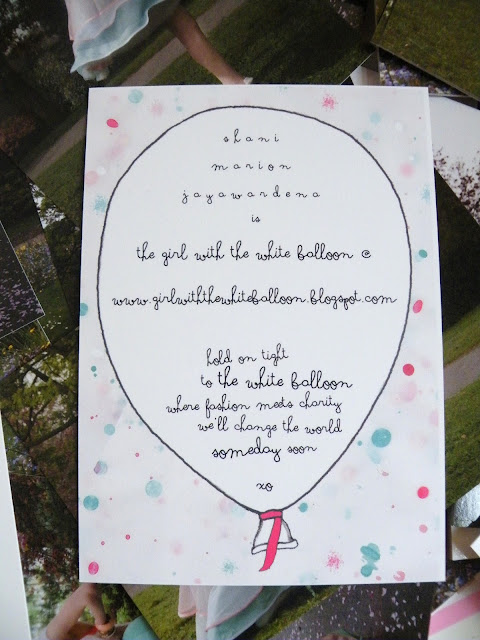 shani
marion
jayawardena
is
the girl with the white balloon @
www.girlwiththewhiteballoon.blogspot.com
hold on tight
to the white balloon
where fashion meets charity
we'll change the world
someday soon
xo